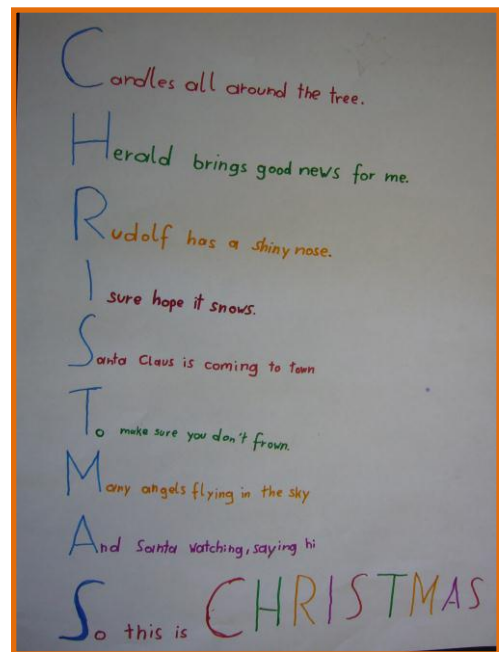 Candles all around the tree.
Herald brings good news for me.
Rudolf has a shiny nose.
I sure hope it snows.
Santa Claus is coming to town
To make sure you don't frown.
Many angels flying in the sky
And Santa watching, saying hi
So this is CHRISTMAS